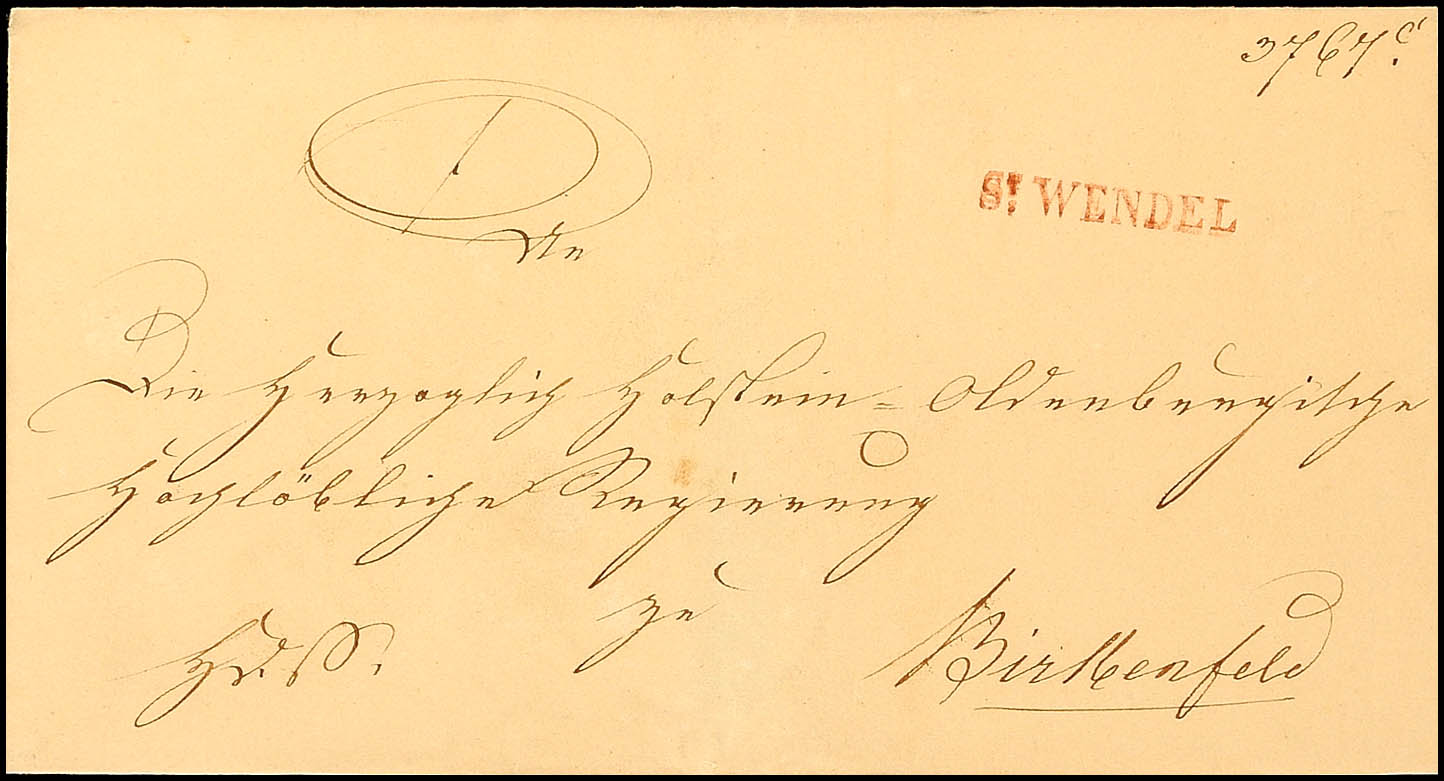 3767 c.
St. WENDEL
An
Die Herzoglich Holstein=Oldenburgische
Hochlöbliche Regierung
zu
Birkenfeld